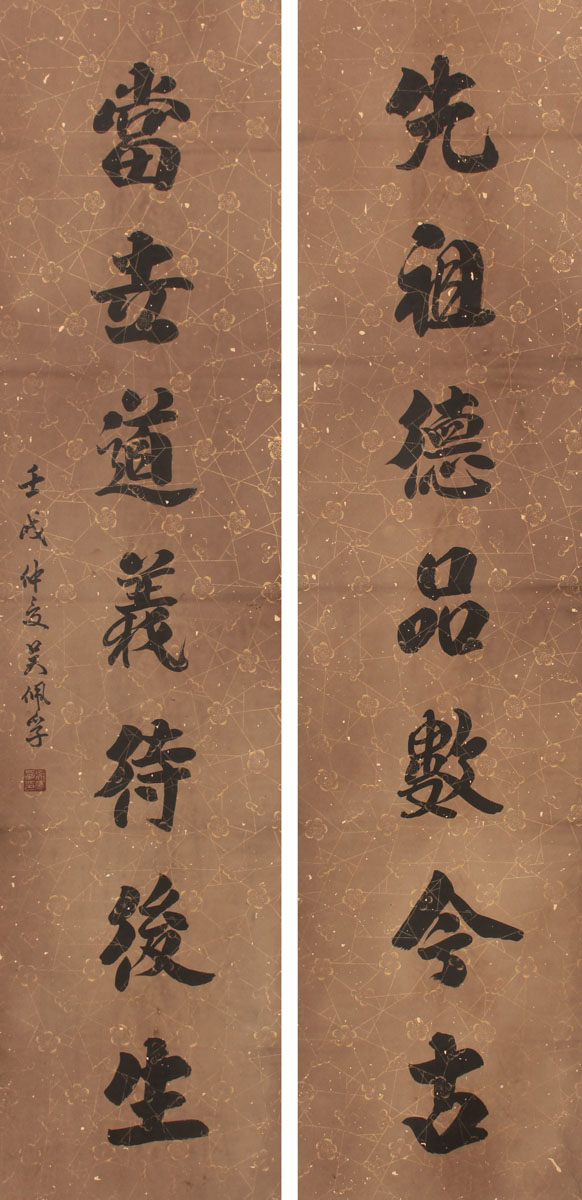 先祖德品數今古
當立道義待後生
壬戌仲夏吳佩孚